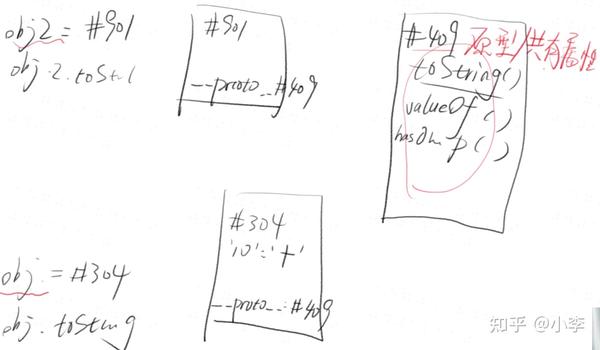 obj2 = #901
obj.2.toStri
#901
__proto__:#409
#409 原型/共有属性
toString()
valueOf()
hasOwnP()
obj = #304
obj.toString
#304
'10':'+'
__proto__:#409
知乎 @小李